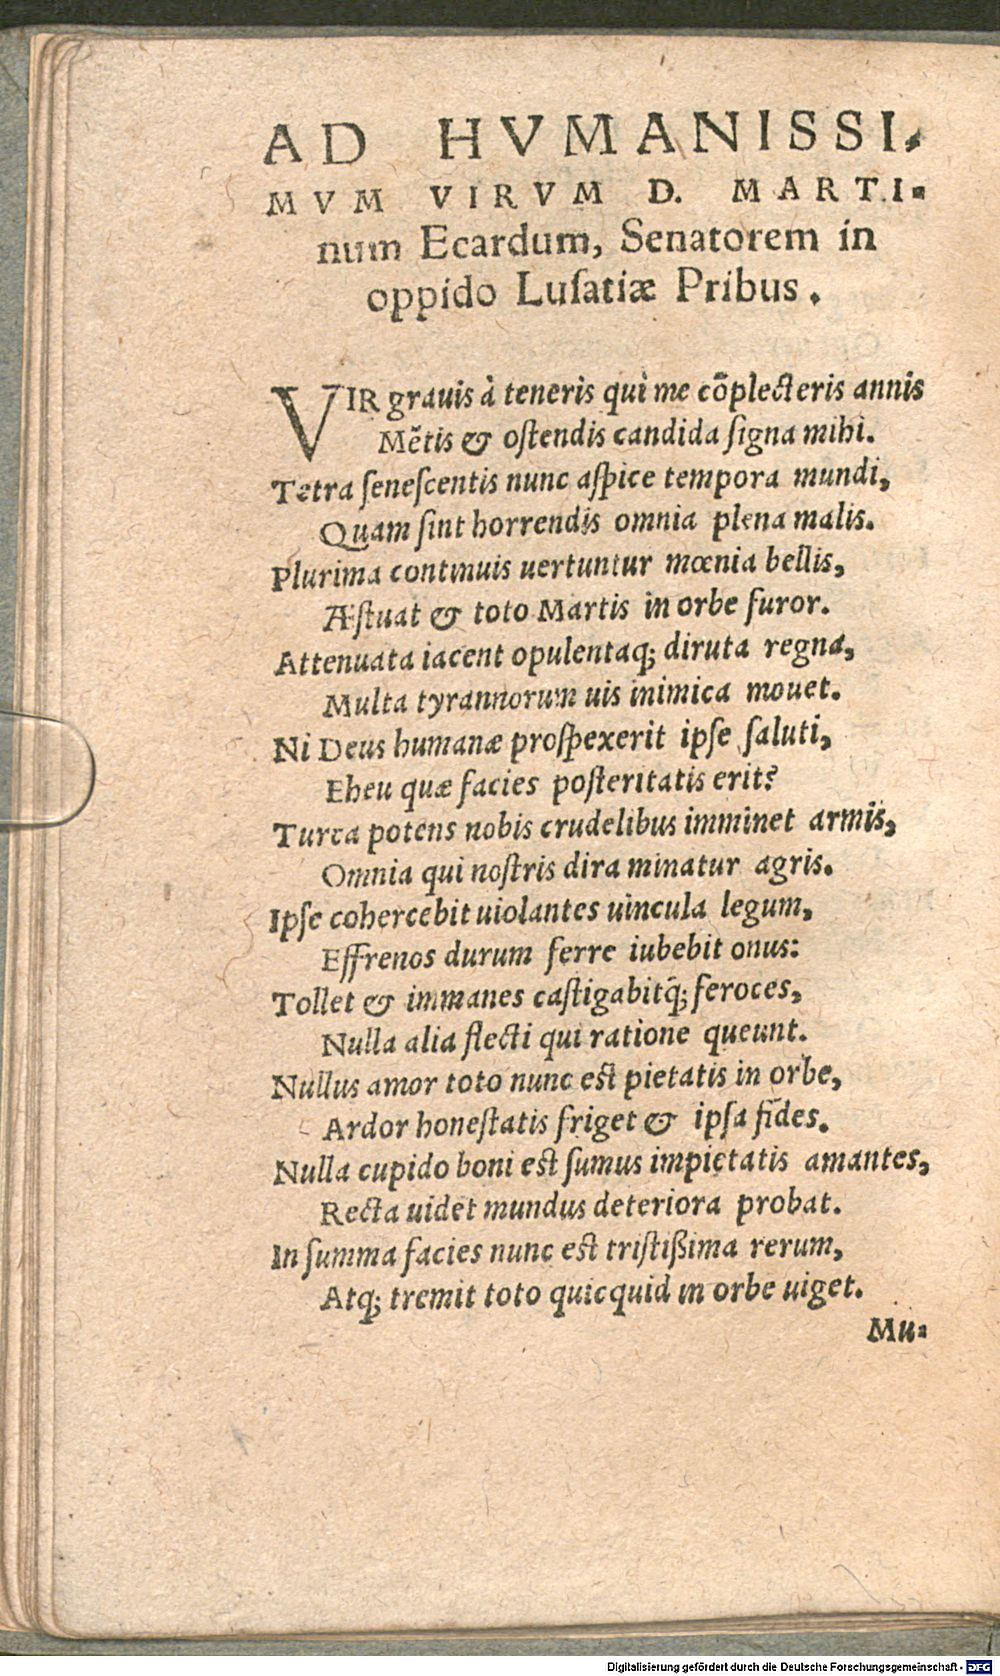 AD HVMANISSI-
MVM VIRVM D. MARTI-
num Ecardum, Senatorem in
oppido Lusatiæ Pribus.
VIR grauis à teneris qui me cõplecteris annis
Mẽtis & ostendis candida signa mihi.
Tetra senescentis nunc aspice tempora mundi,
Quam sint horrendis omnia plena malis.
Plurima continuis uertuntur mœnia bellis,
Æstuat & toto Martis in orbe furor.
Attenuata iacent opulentaq; diruta regna,
Multa tyrannorum uis inimica mouet.
Ni Deus humanæ prospexerit ipse saluti,
Eheu quæ facies posteritatis erit?
Turca potens nobis crudelibus imminet armis,
Omnia qui nostris dira minatur agris.
Ipse cohercebit uiolantes uincula legum,
Effrenos durum ferre iubebit onus:
Tollet & immanes castigabitq̃; feroces,
Nulla alia flecti qui ratione queunt.
Nullus amor toto nunc est pietatis in orbe,
Ardor honestatis friget & ipsa fides.
Nulla cupido boni est sumus impietatis amantes,
Recta uidet mundus deteriora probat.
In summa facies nunc est tristißima rerum,
Atq; tremit toto quicquid in orbe uiget.
Mu-
Digitalisierung gefördert durch die Deutsche Forschungsgemeinschaft - DFG